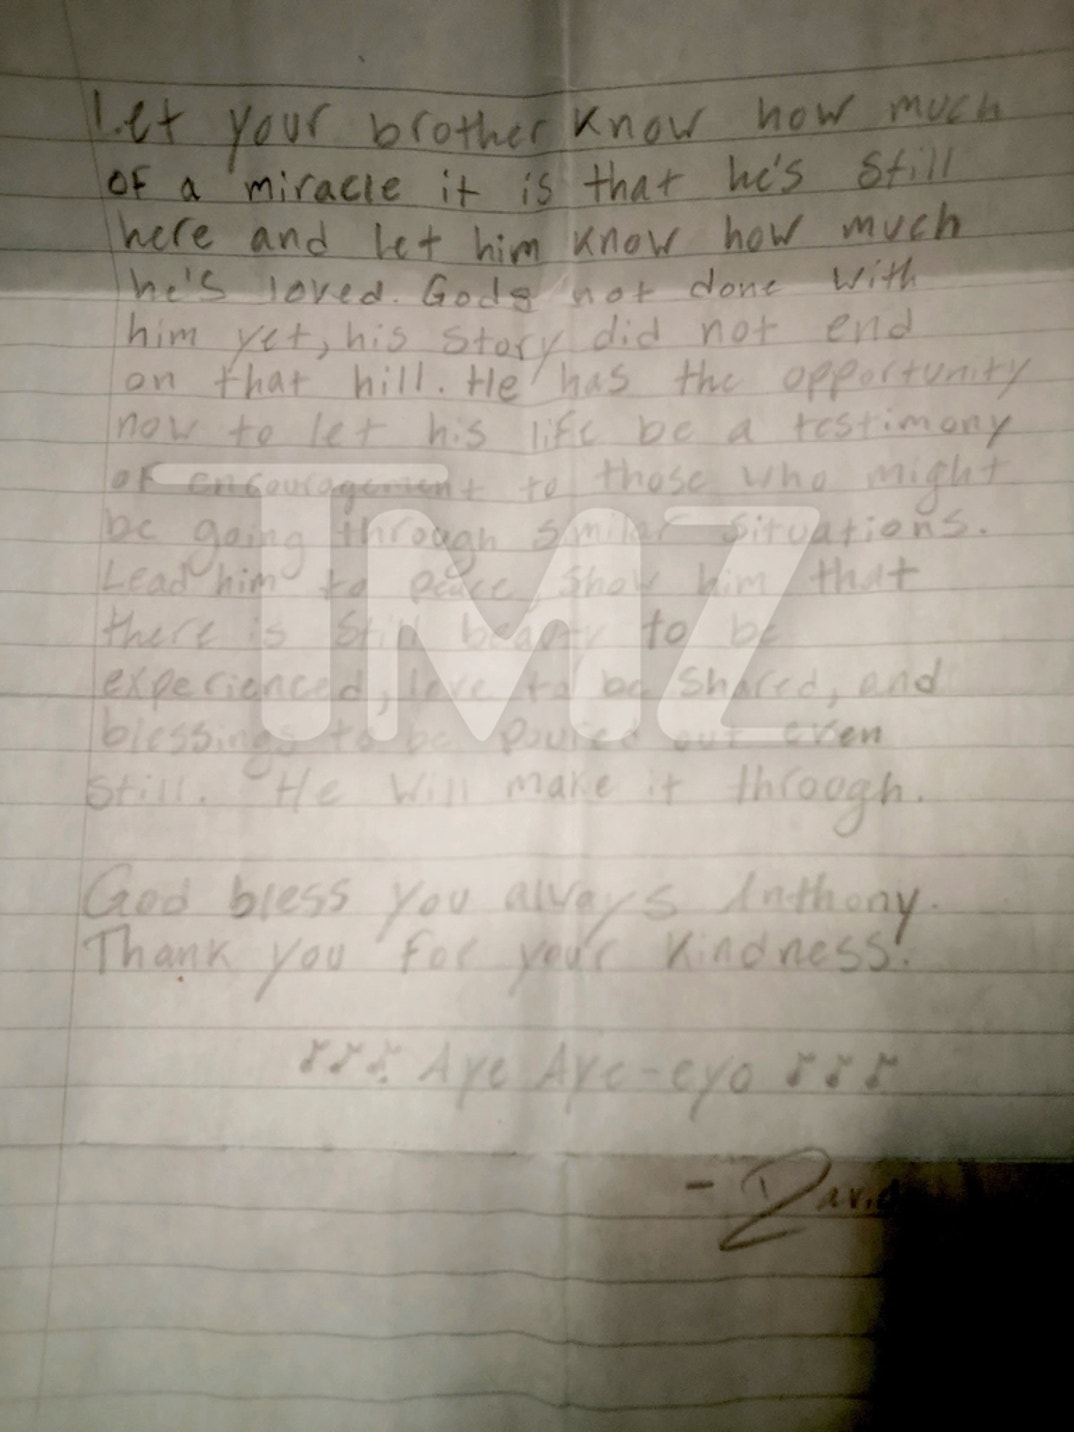 Let your brother know how much
of a miracle it is that he's still
here and let him know how much
he's loved. Gods not done with
him yet, his story did not end
on that hill. He has the opportunity
now to let his life be a testimony
of encouragement to those who might
be going through similar situations.
Lead him to peace, show him that
there is still beauty to be
experienced, love to be shared, and
blessings to be poured out even
still. He will make it through.
God bless you always Anthony.
Thank you for your kindness!
Aye Aye-eyo
- David
TMZ